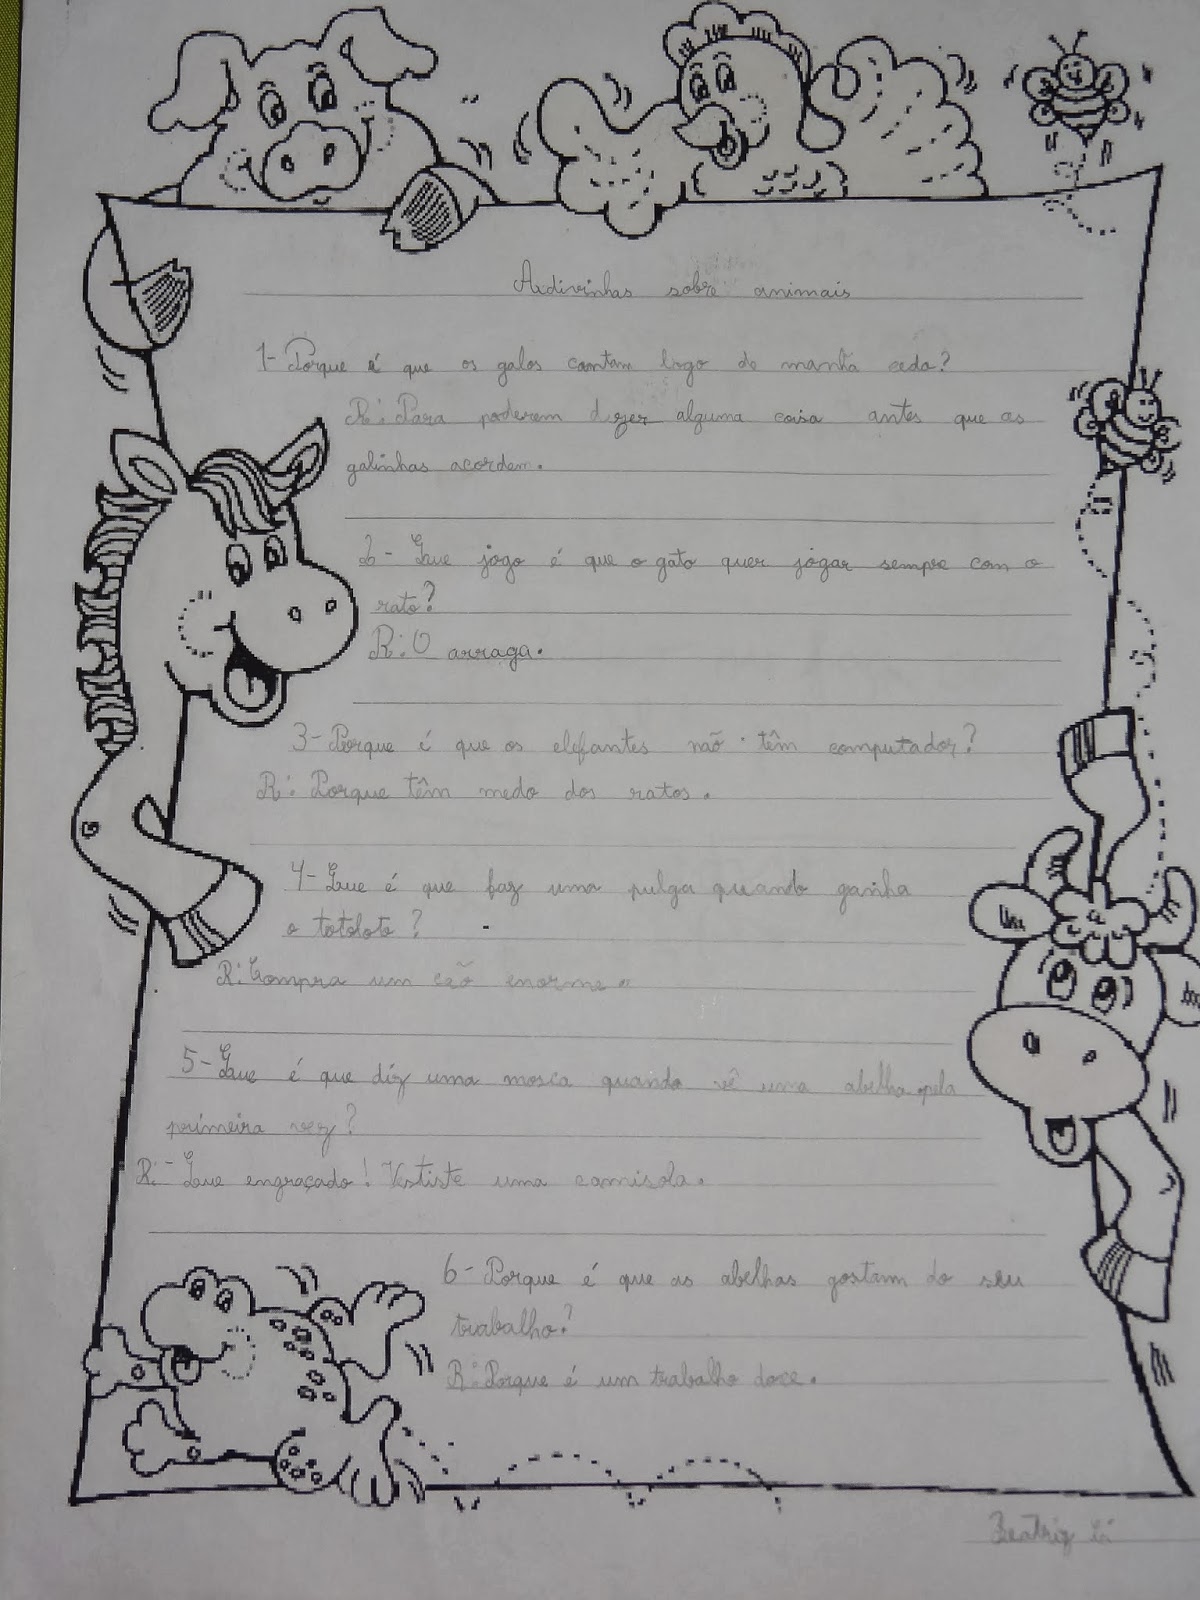 Adivinhas sobre animais
1- Porque é que os galos cantam logo de manhã cedo?
R: Para poderem dizer alguma coisa antes que as
galinhas acordem.
2- Que jogo é que o gato quer jogar sempre com o
rato?
R: O arraga.
3- Porque é que os elefantes não têm computador?
R: Porque têm medo dos ratos.
4- Que é que faz uma pulga quando ganha
o totoloto?
R: Compra um cão enorme.
5- Que é que diz uma mosca quando vê uma abelha pela
primeira vez?
R: - Que engraçado! Vestiste uma camisola.
6- Porque é que as abelhas gostam do seu
trabalho?
R: Porque é um trabalho doce.
Beatriz